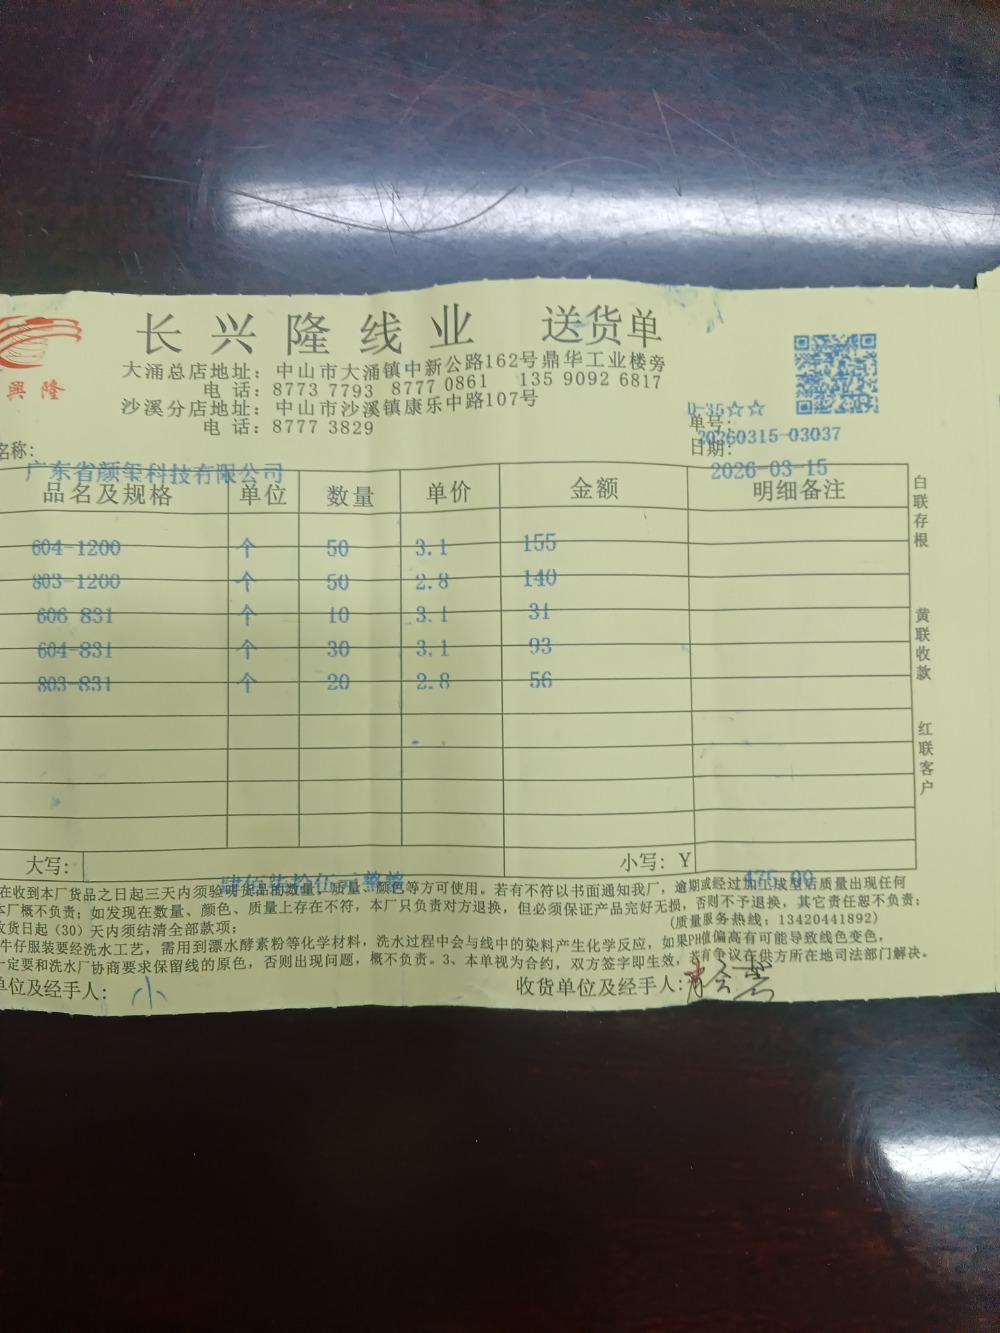 长兴隆线业 送货单
興隆
大涌总店地址：中山市大涌镇中新公路162号鼎华工业楼旁
电 话：8773 7793 8777 0861 135 9092 6817
沙溪分店地址：中山市沙溪镇康乐中路107号
电 话：8777 3829
D-35☆☆
单号：20260315-03037
日期：2026-03-15
名称：广东省颜玺科技有限公司
品名及规格 单位 数量 单价 金额 明细备注
604-1200 个 50 3.1 155
803-1200 个 50 2.8 140
606-831 个 10 3.1 31
604-831 个 30 3.1 93
803-831 个 20 2.8 56
白联存根 黄联收款 红联客户
大写：肆佰柒拾伍元整整 小写：Y 475.00
在收到本厂货品之日起三天内须验明货品的数量、质量、颜色等方可使用。若有不符以书面通知我厂，逾期或经过加工成型后质量出现任何
本厂概不负责；如发现在数量、颜色、质量上存在不符，本厂只负责对方退换，但必须保证产品完好无损，否则不予退换，其它责任恕不负责；
收货日起（30）天内须结清全部款项； （质量服务热线：13420441892）
牛仔服装要经洗水工艺，需用到漂水酵素粉等化学材料，洗水过程中会与线中的染料产生化学反应，如果PH值偏高有可能导致线色变色，
一定要和洗水厂协商要求保留线的原色，否则出现问题，概不负责。3、本单视为合约，双方签字即生效，若有争议在供方所在地司法部门解决。
单位及经手人：小 收货单位及经手人：